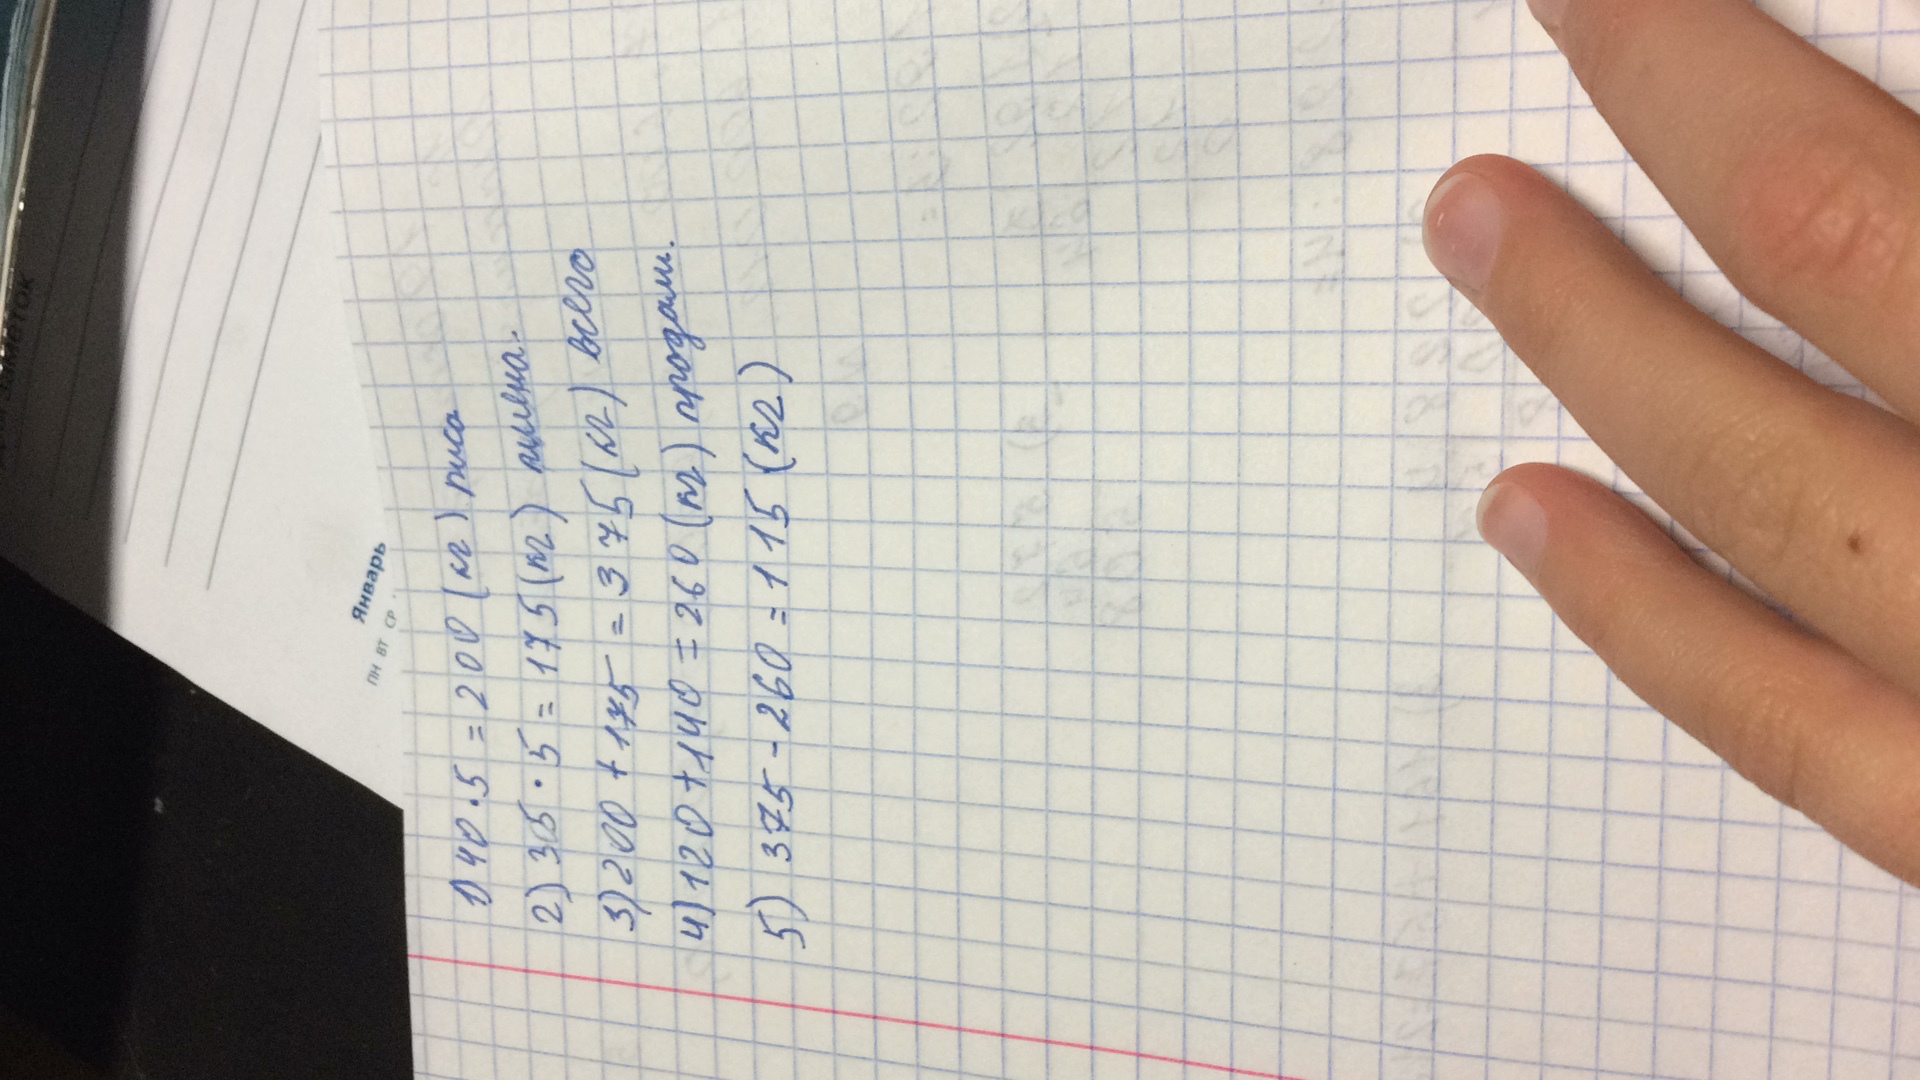 1) 40 · 5 = 200 (кг) риса
2) 35 · 5 = 175 (кг) пшена.
3) 200 + 175 = 375 (кг) всего
4) 120 + 140 = 260 (кг) продали.
5) 375 - 260 = 115 (кг)
Январь
пн вт ср